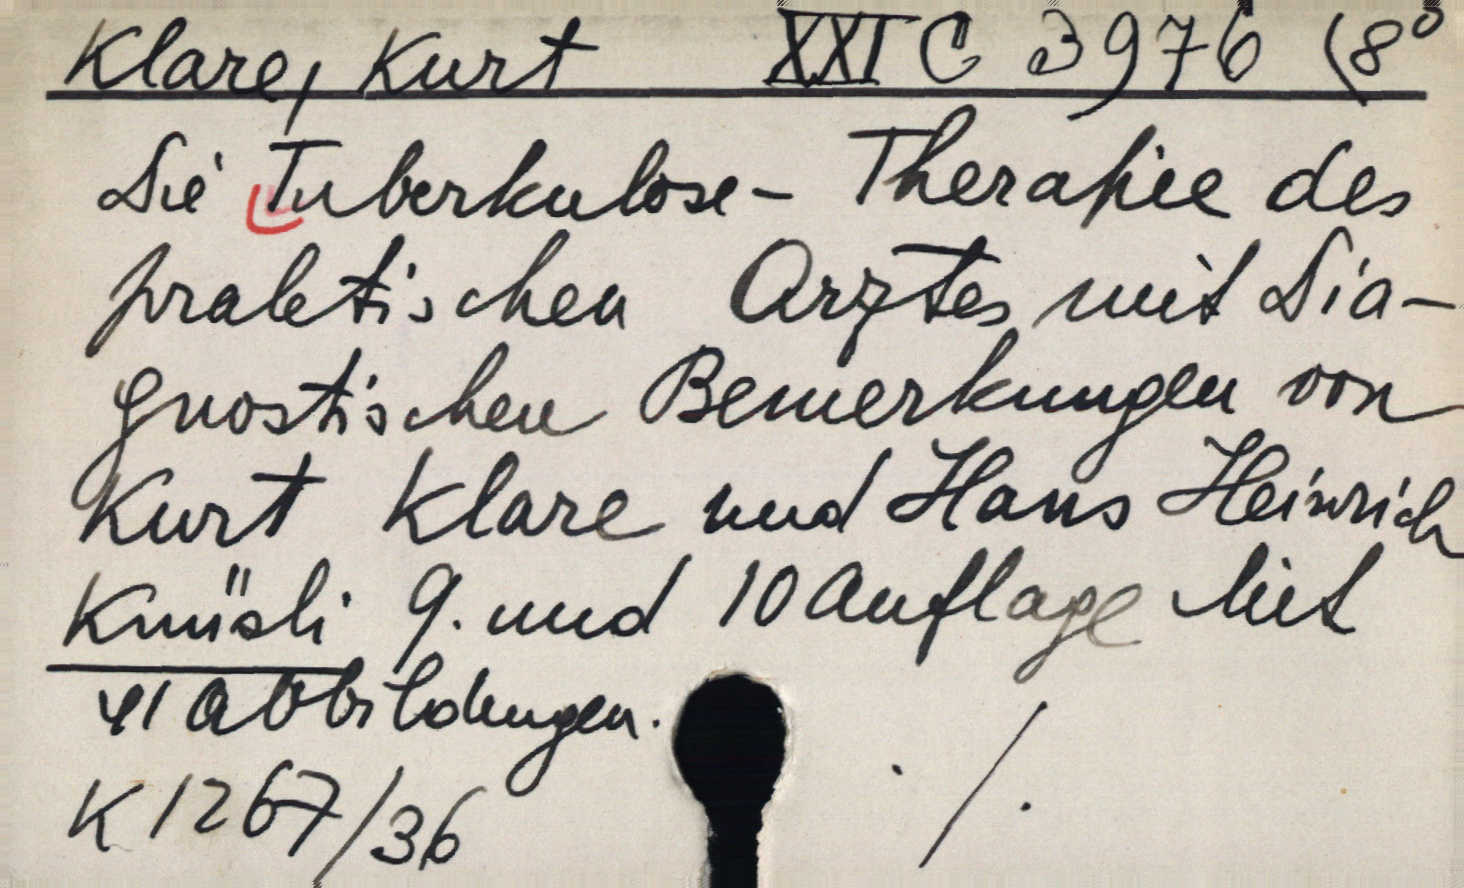 Klare, Kurt XXI C 3976 (8°
Die Tuberkulose- Therapie des
praktischen Arztes mit Dia-
gnostischen Bemerkungen von
Kurt Klare und Hans Heinrich
Knüsli 9. und 10 Auflage Mit
41 Abbildungen.
K 1267/36 ./.